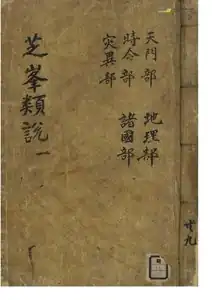 天門部 地理部
時令部 諸國部
灾異部
芝峯類說 一